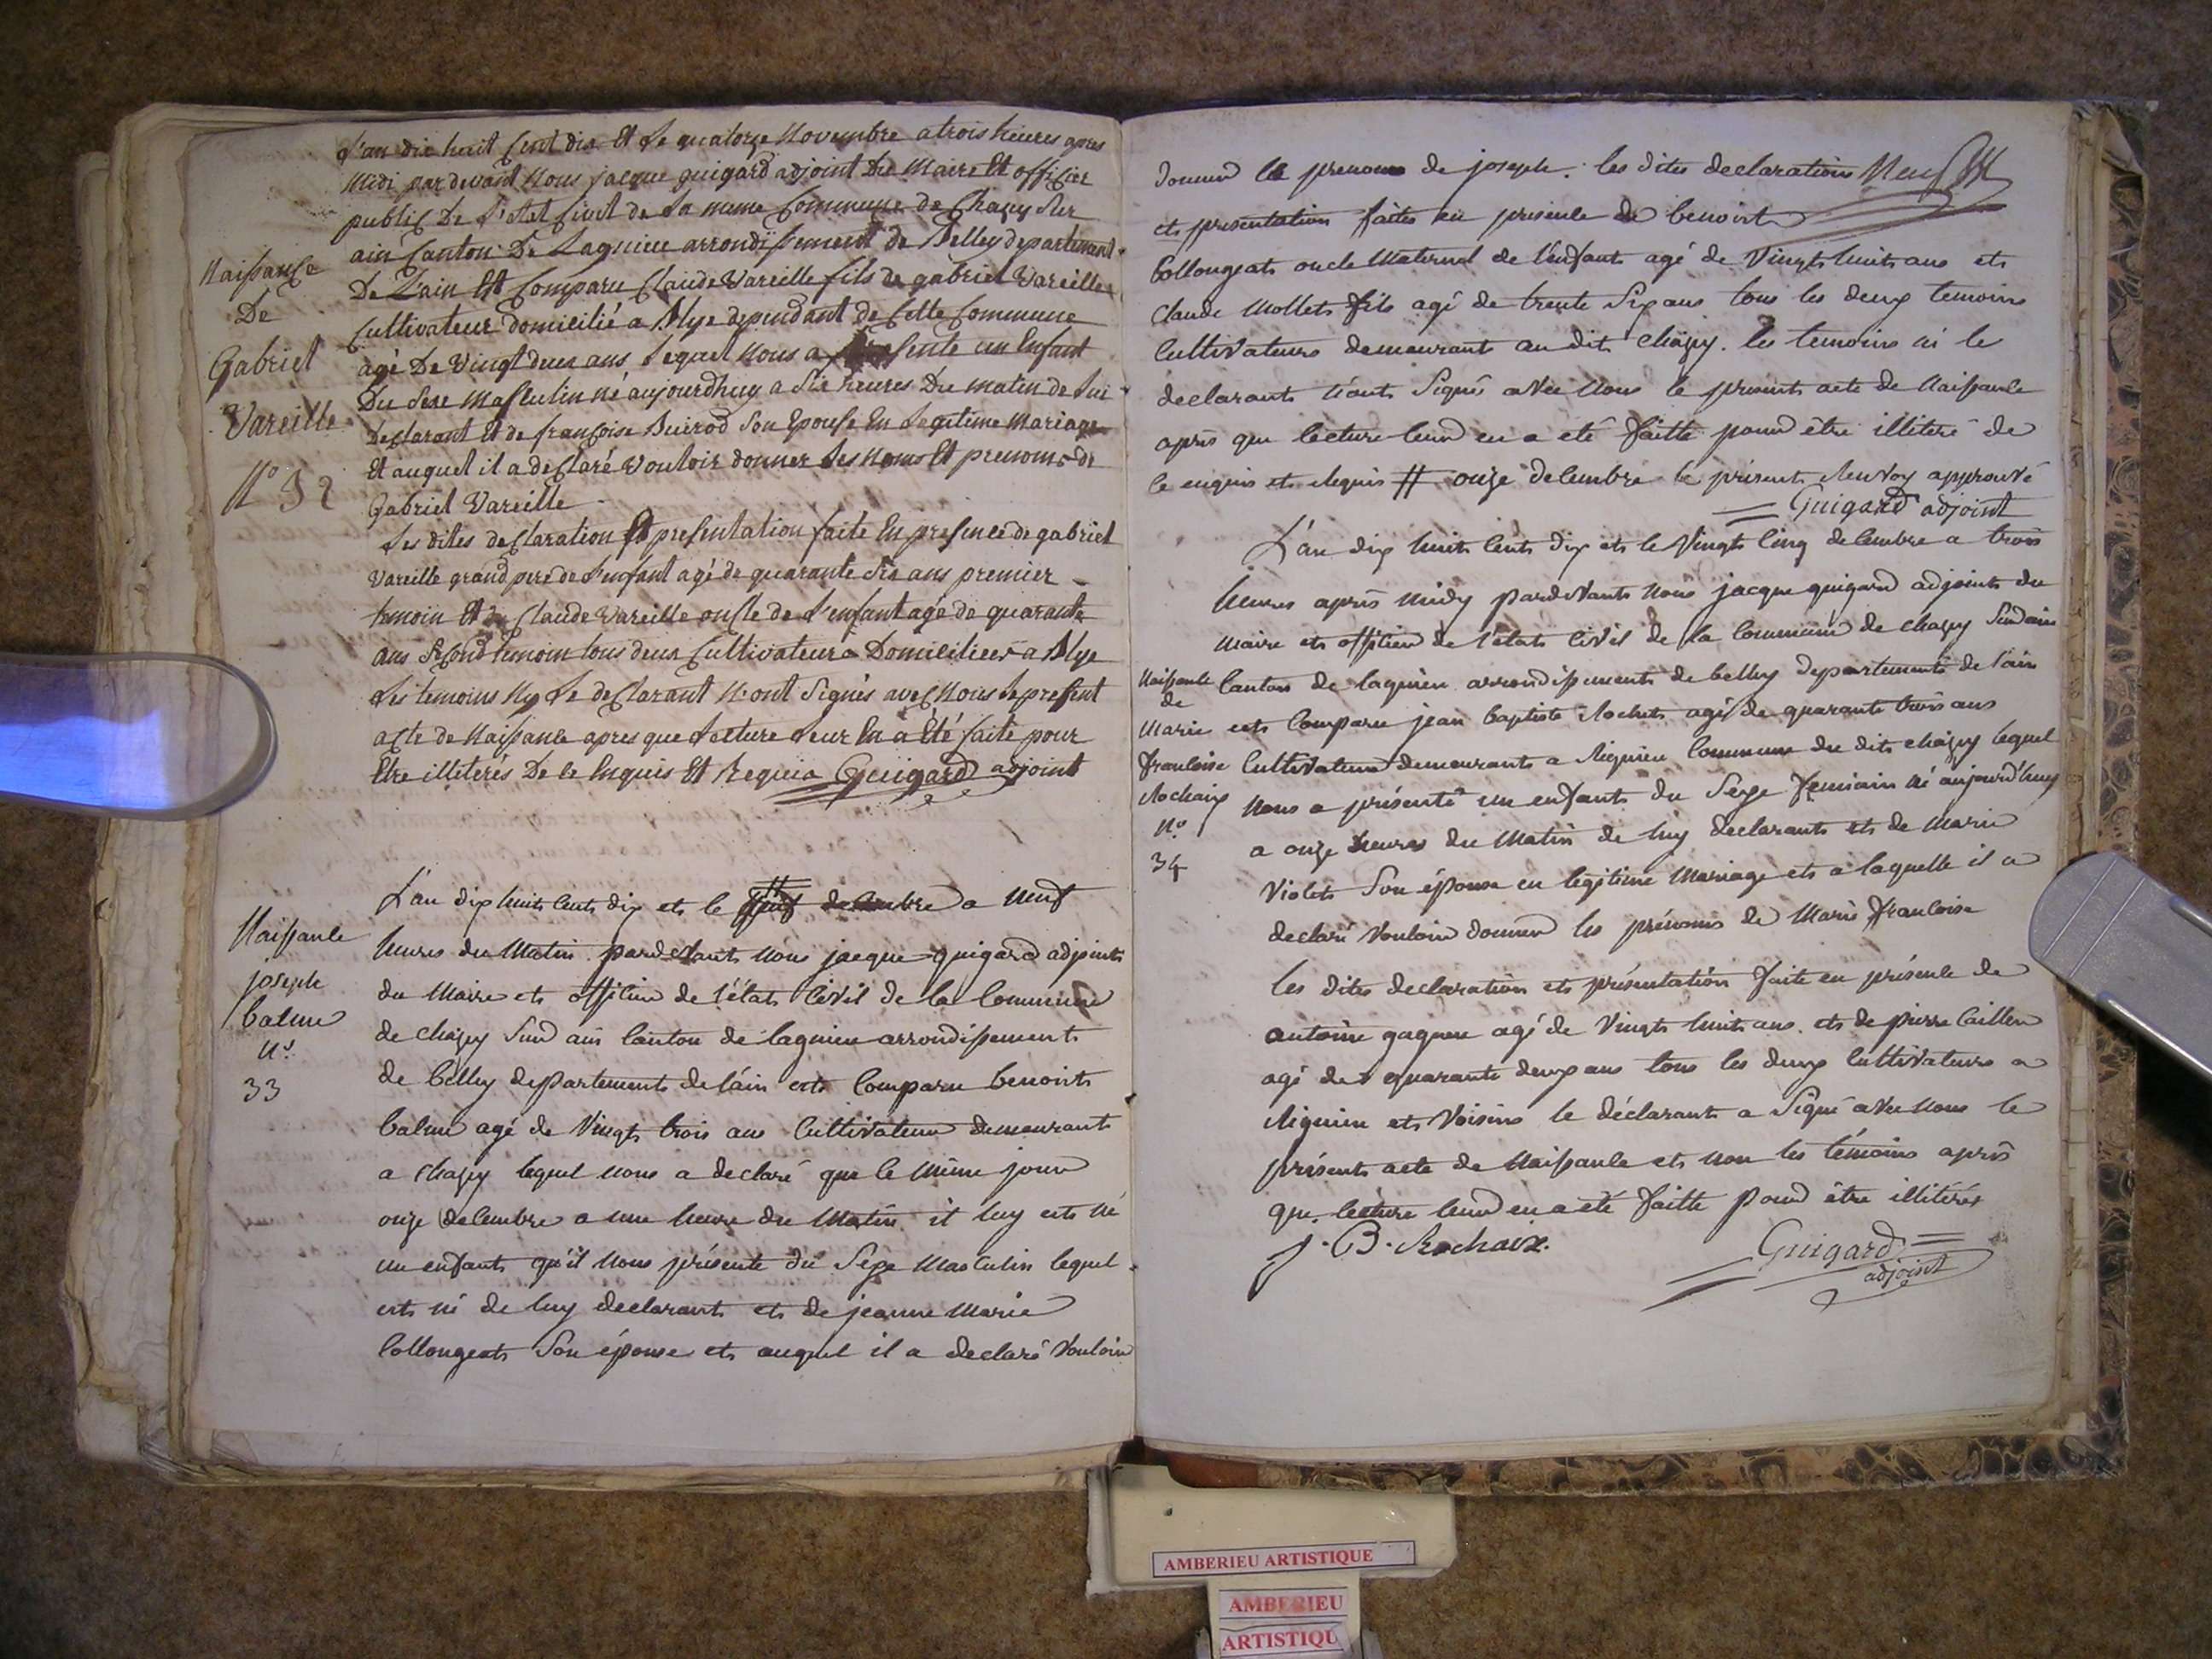 L'an dix huit Cent dix Et Le quatorze Novembre a trois heures apres
Midi par devant Nous jacque guigard adjoint Du Maire Et officier
public De L'Etat Civil de La Commune de Chazey Sur
ain Canton De Lagnieu arrondissement de Belley departement
De L'ain Est Comparu Claude Vareille fils de gabriel Vareille
Cultivateur domicilié a Blye dependant de Cette Commune
agé De Vingt deux ans Lequel Nous a presenté un Enfant
Du Sexe Masculin né aujourdhuy a Six heures Du matin de Lui
Declarant Et de françoise Buirod Son Epouse En Legitime Mariage
Et auquel il a declaré Vouloir donner Les Noms Et prenoms de
Gabriel Vareille
Les dites declaration Et presentation faite En presence de gabriel
Vareille grand pere de L'enfant agé de quarante Six ans premier
temoin Et de Claude Vareille oncle de L'enfant agé de quarante
ans Second temoin tous deux Cultivateurs Domiciliés a Blye
Les temoins Ny Le declarant N'ont Signés avec Nous Le present
acte de Naissance apres que Lecture Leur En a Eté faite pour
Etre illiterés De ce Enquis Et Requis Guigard adjoint
Naissance
De
Gabriel
Vareille
No 32
L'an dix huit cent dix et le # decembre a neuf
heures du Matin pardevant nous jacque guigard adjoint
du Maire et officier de l'état Civil de la Commune
de chazey Sur ain Canton de lagnieu arrondissement
de belley departement de l'ain est Comparu benoit
balme agé de Vingt trois ans Cultivateur demeurant
a chazey lequel nous a declaré que le même jour
onze decembre a une heure du Matin il luy est né
un enfant qu'il nous présente du Sexe Masculin lequel
est né de luy declarant et de jeanne Marie
Collongeat Son épouse et auquel il a declaré Vouloir
Naissance
joseph
balme
No
33
donner le prenom de joseph. les dites declarations
et presentation faites en presence de benoit
Collongeat oncle Maternel de l'enfant agé de Vingt huit ans et
Claude Mollet fils agé de trente Six ans tous les deux temoins
Cultivateurs demeurant au dit chazey. les temoins ni le
declarant n'ont Signés avec nous le present acte de Naissance
après que lecture leur en a eté faitte pour être illiteré de
ce enquis et requis # onze decembre le présent Renvoy approuvé
Guigard adjoint
L'an dix huit Cent dix et le Vingt Cinq decembre a trois
heures après midy pardevant nous jacque guigard adjoint du
maire et officier de l'état Civil de la Commune de chazey Sur ain
Canton de lagnieu arrondissement de belley departement de l'ain
est Comparu jean baptiste Rochet agé de quarante trois ans
Cultivateur demeurant a Rignieu Commune du dit chazey lequel
nous a présenté un enfant du Sexe feminin né aujourd'huy
a onze heures du Matin de luy declarant et de Marie
Violet Son épouse en legitime Mariage et a laquelle il a
declaré Vouloir donner les prénoms de Marie françoise
les dites declaration et présentation faite en présence de
antoine gagneu agé de Vingt huit ans. et de pierre Caillou
agé de quarante deux ans tous les deux Cultivateurs a
Rignieu et Voisins le déclarant a Signé avec nous le
présent acte de Naissance et non les témoins après
que lecture leur en a eté faitte pour être illitérés
J. B. Rochaix.
Guigard
adjoint
Naissance
de
Marie
françoise
Rochaix
No
34
AMBERIEU ARTISTIQUE
AMBERIEU
ARTISTIQU